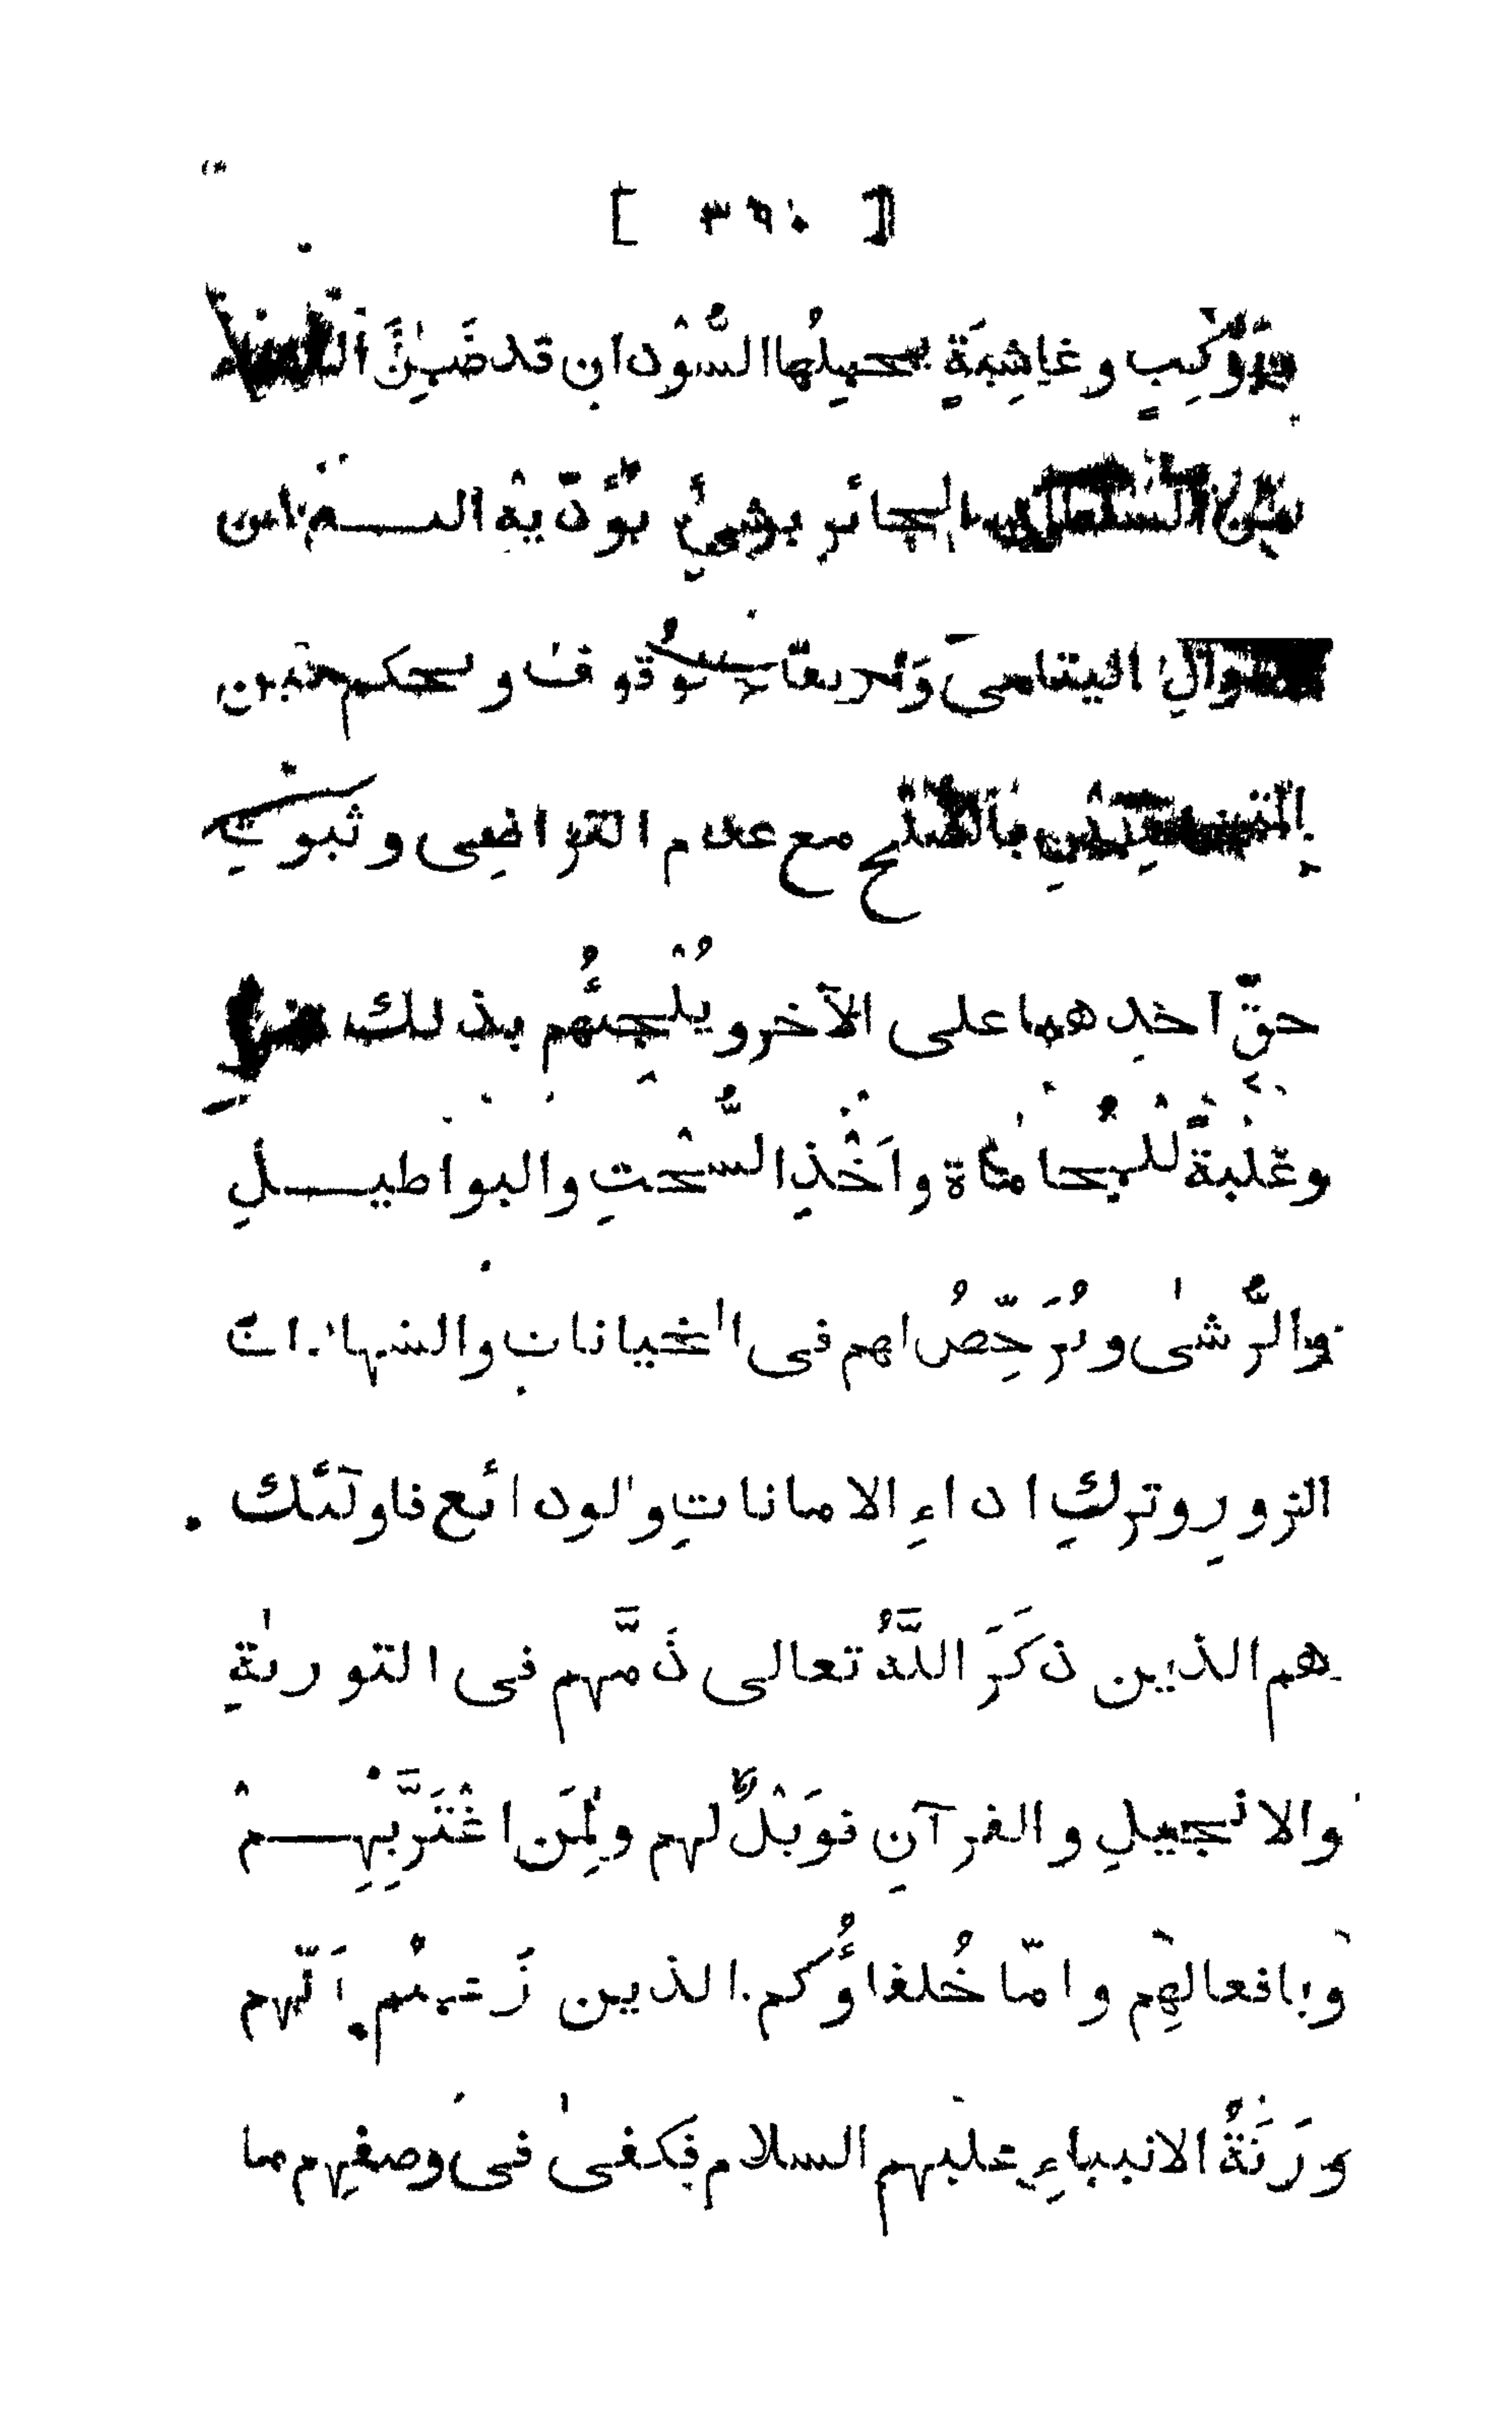 [ ٣٦٠ ]
ومَوْكِبٍ وغاشِيَةٍ يحمِلُها السُّوْدان قد ضَمِنَ القضاءَ
من السلطان الجائر بشيءٍ يُؤَدّيْهِ اليه من
اموالِ اليتامى وَ الوقوف ويحكم بين
المتقاعِدَيْنِ بالصُّلح مع عدم التراضِى وثبوتِ
حقّ احدِهما على الآخر ويُلْجِئُهم بذلك
وغَلَبَةً للمُحاماة واَخْذِ السُّحْتِ والبواطيلِ
والرُّشىٰ ويُرَخِّصُ لهم فى الخيانات والشهادات
الزورِ وتركِ اداءِ الاماناتِ والودائع فاولٓئك
هم الذين ذكَرَ اللَّهُ تعالى ذَمَّهم فى التورىٰةِ
والانجيلِ والقرآنِ فوَيْلٌ لهم ولِمَن اغْتَرَّ بِهِمْ
وبافعالهِم وامّا خُلفاؤُكم الذين زَعمتُم اَنّهم
ورَثَةُ الانبياءِ عليهم السلام فكفىٰ فى وصفِهم ما